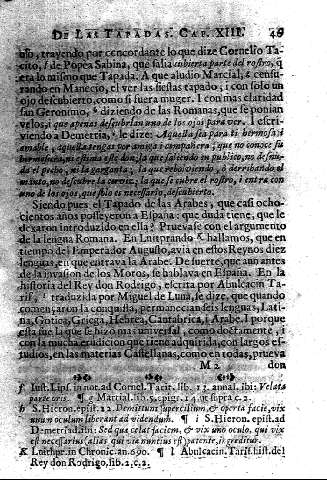 DE LAS TAPADAS. CAP. XIII. 46
uso, trayendo por concordante lo que dize Cornelio Ta-
cito, f de Popea Sabina, que salia cubierta parte del rostro, q
era lo mismo que Tapada. A que aludio Marcial, g censu-
rando en Manecio, el ver las fiestas tapado; i con solo un
ojo descubierto, como si fuera muger. I con mas claridad
san Geronimo, h diziendo de las Romanas, que se ponian
velos, i que apenas descubrian uno de los ojos para ver. I escri-
viendo a Demetria, i le dize: Aquella sea para ti hermosa, i
amable, aquella tengas por amiga i compañera, que no conoce su
hermosura, ni estima este don; la que saliendo en publico, no desnu-
da el pecho, ni la garganta; la que rebolviendo, o derribando el
manto, no descubre la cerviz; la que se cubre el rostro, i entra con
uno de los ojos, que solo es necessario, descubierto.
Siendo pues el Tapado de las Arabes, que casi ocho-
cientos años posseyeron a España: que duda tiene, que le
dexaron introduzido en ella? Pruevase con el argumento
de la lengua Romana. En Luitprando k hallamos, que en
tiempo del Emperador Augusto, avia en estos Reynos diez
lenguas, en que entrava la Arabe. De suerte, que aun antes
de la invasion de los Moros, se hablava en España. En la
historia del Rey don Rodrigo, escrita por Abulcacin Ta-
rif, l traduzida por Miguel de Luna, se dize, que quando
començaron la conquista, permanecian seis lenguas, Lati-
na, Gotica, Griega, Hebrea, Cantabrica, i Arabe. I porque
esta fue la que se hizo mas universal, como doctamente, i
con la mucha erudicion que tiene adquirida, con largos es-
tudios, en las materias Castellanas, como en todas, prueva
M 2 don
f Iust. Lips. in not. ad Cornel. Tacit. lib. 13. annal. ibi: Velata
parte oris. ¶ g Martial. lib. 5. epigr. 14. ut supra c. 2.
h S. Hieron. epist. 22 Demittum supercilium, & operta facie, vix
unum oculum liberant ad videndum. ¶ i S. Hieron. epist. ad
Demetriad. ibi: Sed qua celat faciem, & vix uno oculo, qui vix
est necessarius (alias qui via nuntius est) patente, ingreditur.
K Luithpr. in Chronic. an. 690. ¶ l Abulcacin. Tarif. hist. del
Rey don Rodrigo, lib. 2. c. 2.